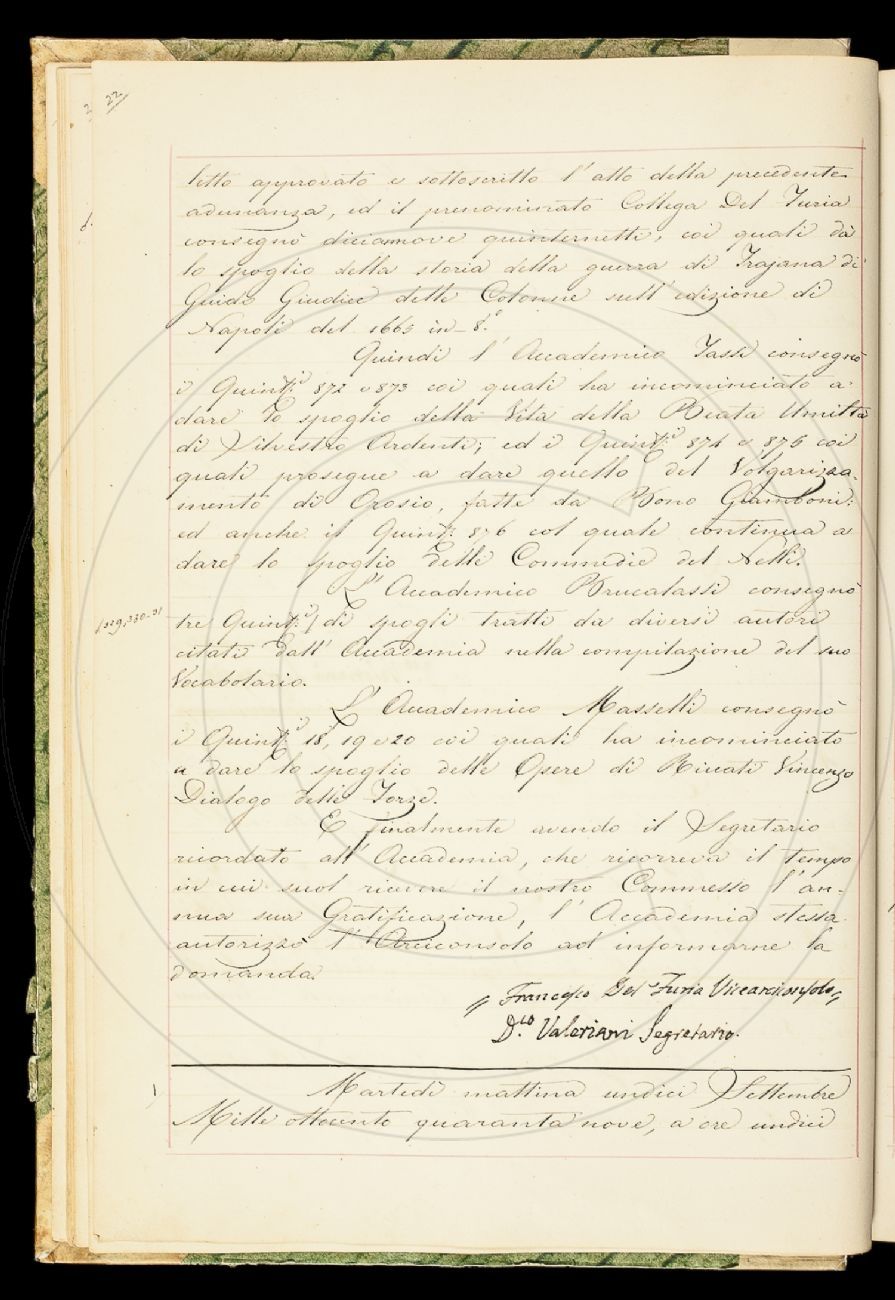 22
letto approvato e sottoscritto l'atto della precedente
adunanza, ed il prenominato Collega Del Furia
consegnò diciannove quinternetti, coi quali dà
lo spoglio della storia della guerra di Trojana di
Guido Giudice delle Colonne sull'edizione di
Napoli del 1665 in-8.°
Quindi l'Accademico Tassi consegnò
i Quint.i 872 e 873 coi quali ha incominciato a
dare lo spoglio della Vita della Beata Umiltà
di Silvestro Ardenti; ed i Quint.i 874 e 875 coi
quali prosegue a dare quello del Volgarizza-
mento di Orosio, fatto da Bono Giamboni:
ed anche il Quint: 876 col quale continua a
dare lo spoglio delle Commedie del Nelli.
L'Accademico Brucalassi consegnò
tre Quint.i / di spogli tratti da diversi autori
citati dall'Accademia nella compilazione del suo
Vocabolario.
L'Accademico Masselli consegnò
i Quint.i 18, 19 e 20 coi quali ha incominciato
a dare lo spoglio delle Opere di Riccati Vincenzo
Dialogo delle Forze.
E finalmente avendo il Segretario
ricordato all'Accademia, che ricorreva il tempo
in cui suol ricevere il nostro Commesso l'an-
nua sua Gratificazione, l'Accademia stessa
autorizzò l'Arciconsolo ad informarne la
domanda.
Francesco Del Furia Vicearciconsolo
D.co Valeriani Segretario.
Martedì mattina undici Settembre
Mille ottocento quaranta nove, a ore undici